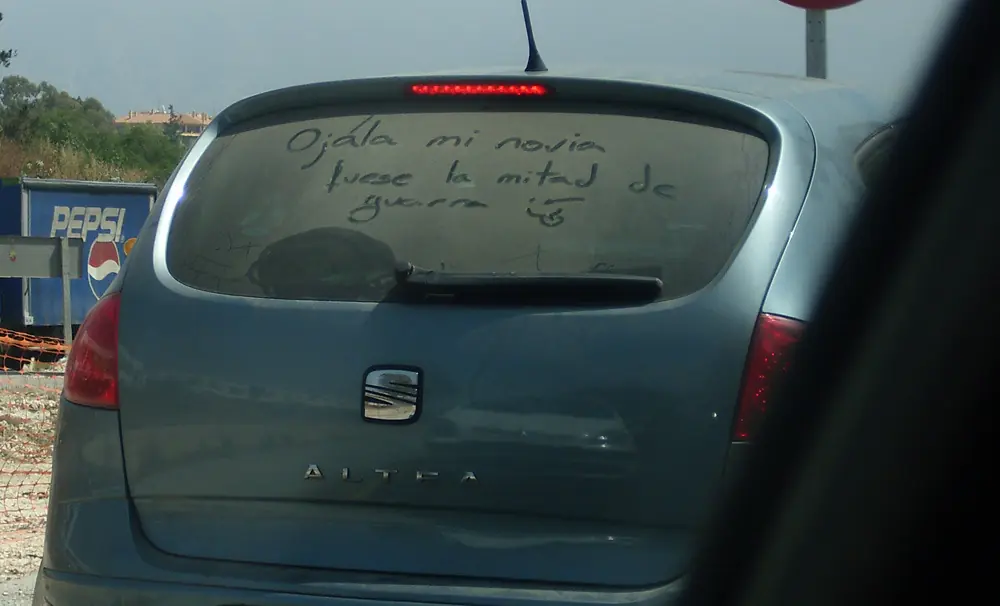 Ojála mi novia
fuese la mitad de
guarra
PEPSI
ALTEA